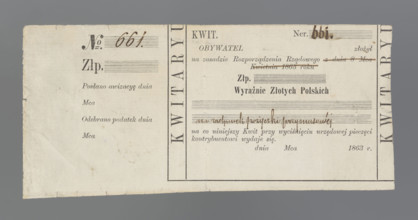 № 661.
Złp.
Podano awizacyę dnia
Mca
Odebrano podatek dnia
Mca
KWITARYU
KWIT. Ner. 661.
OBYWATEL złożył
na zasadzie Rozporządzenia Rządowego z dnia 8 Mca
Kwietnia 1863 roku.
Złp.
Wyraźnie Złotych Polskich
na rachunek pożyczki przymusowéj
na co niniejszy Kwit przy wyciśnięciu urzędowej pieczęci
kontrybuentowi wydaje się.
dnia Mca 1863 r.
KWITARYU